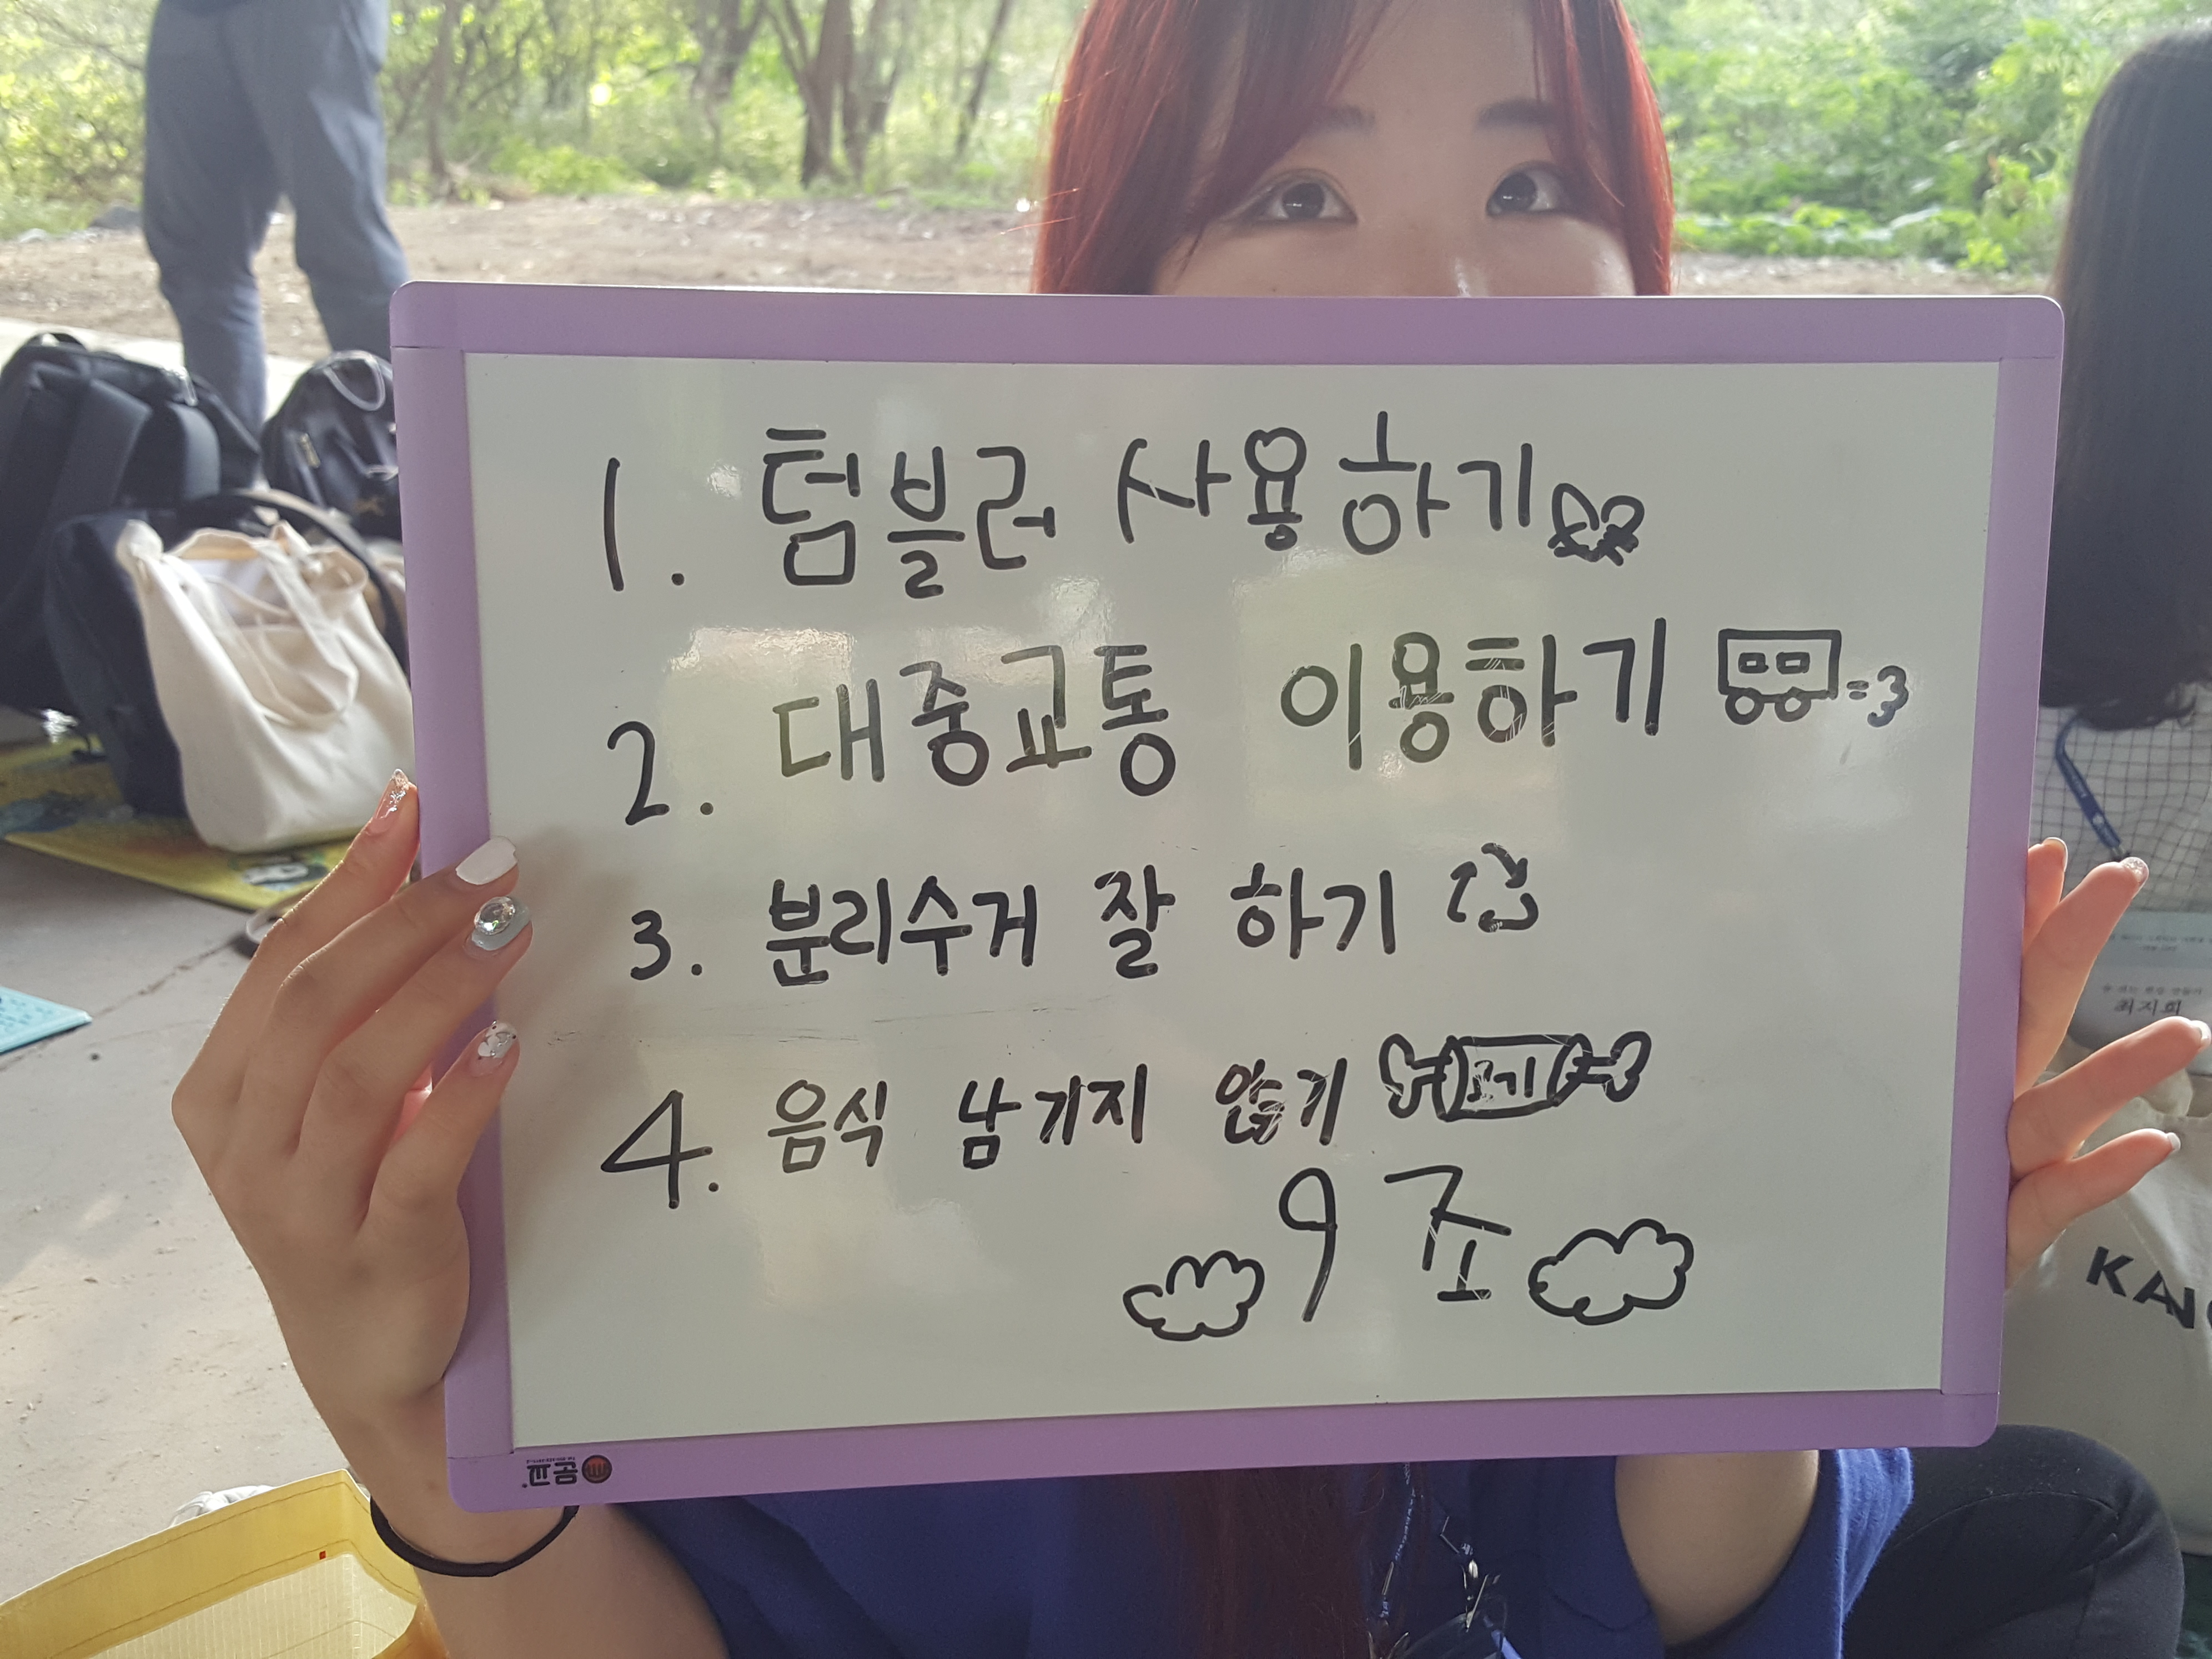 1. 텀블러 사용하기
2. 대중교통 이용하기
3. 분리수거 잘 하기
4. 음식 남기지 않기
9조
최지희
교곰